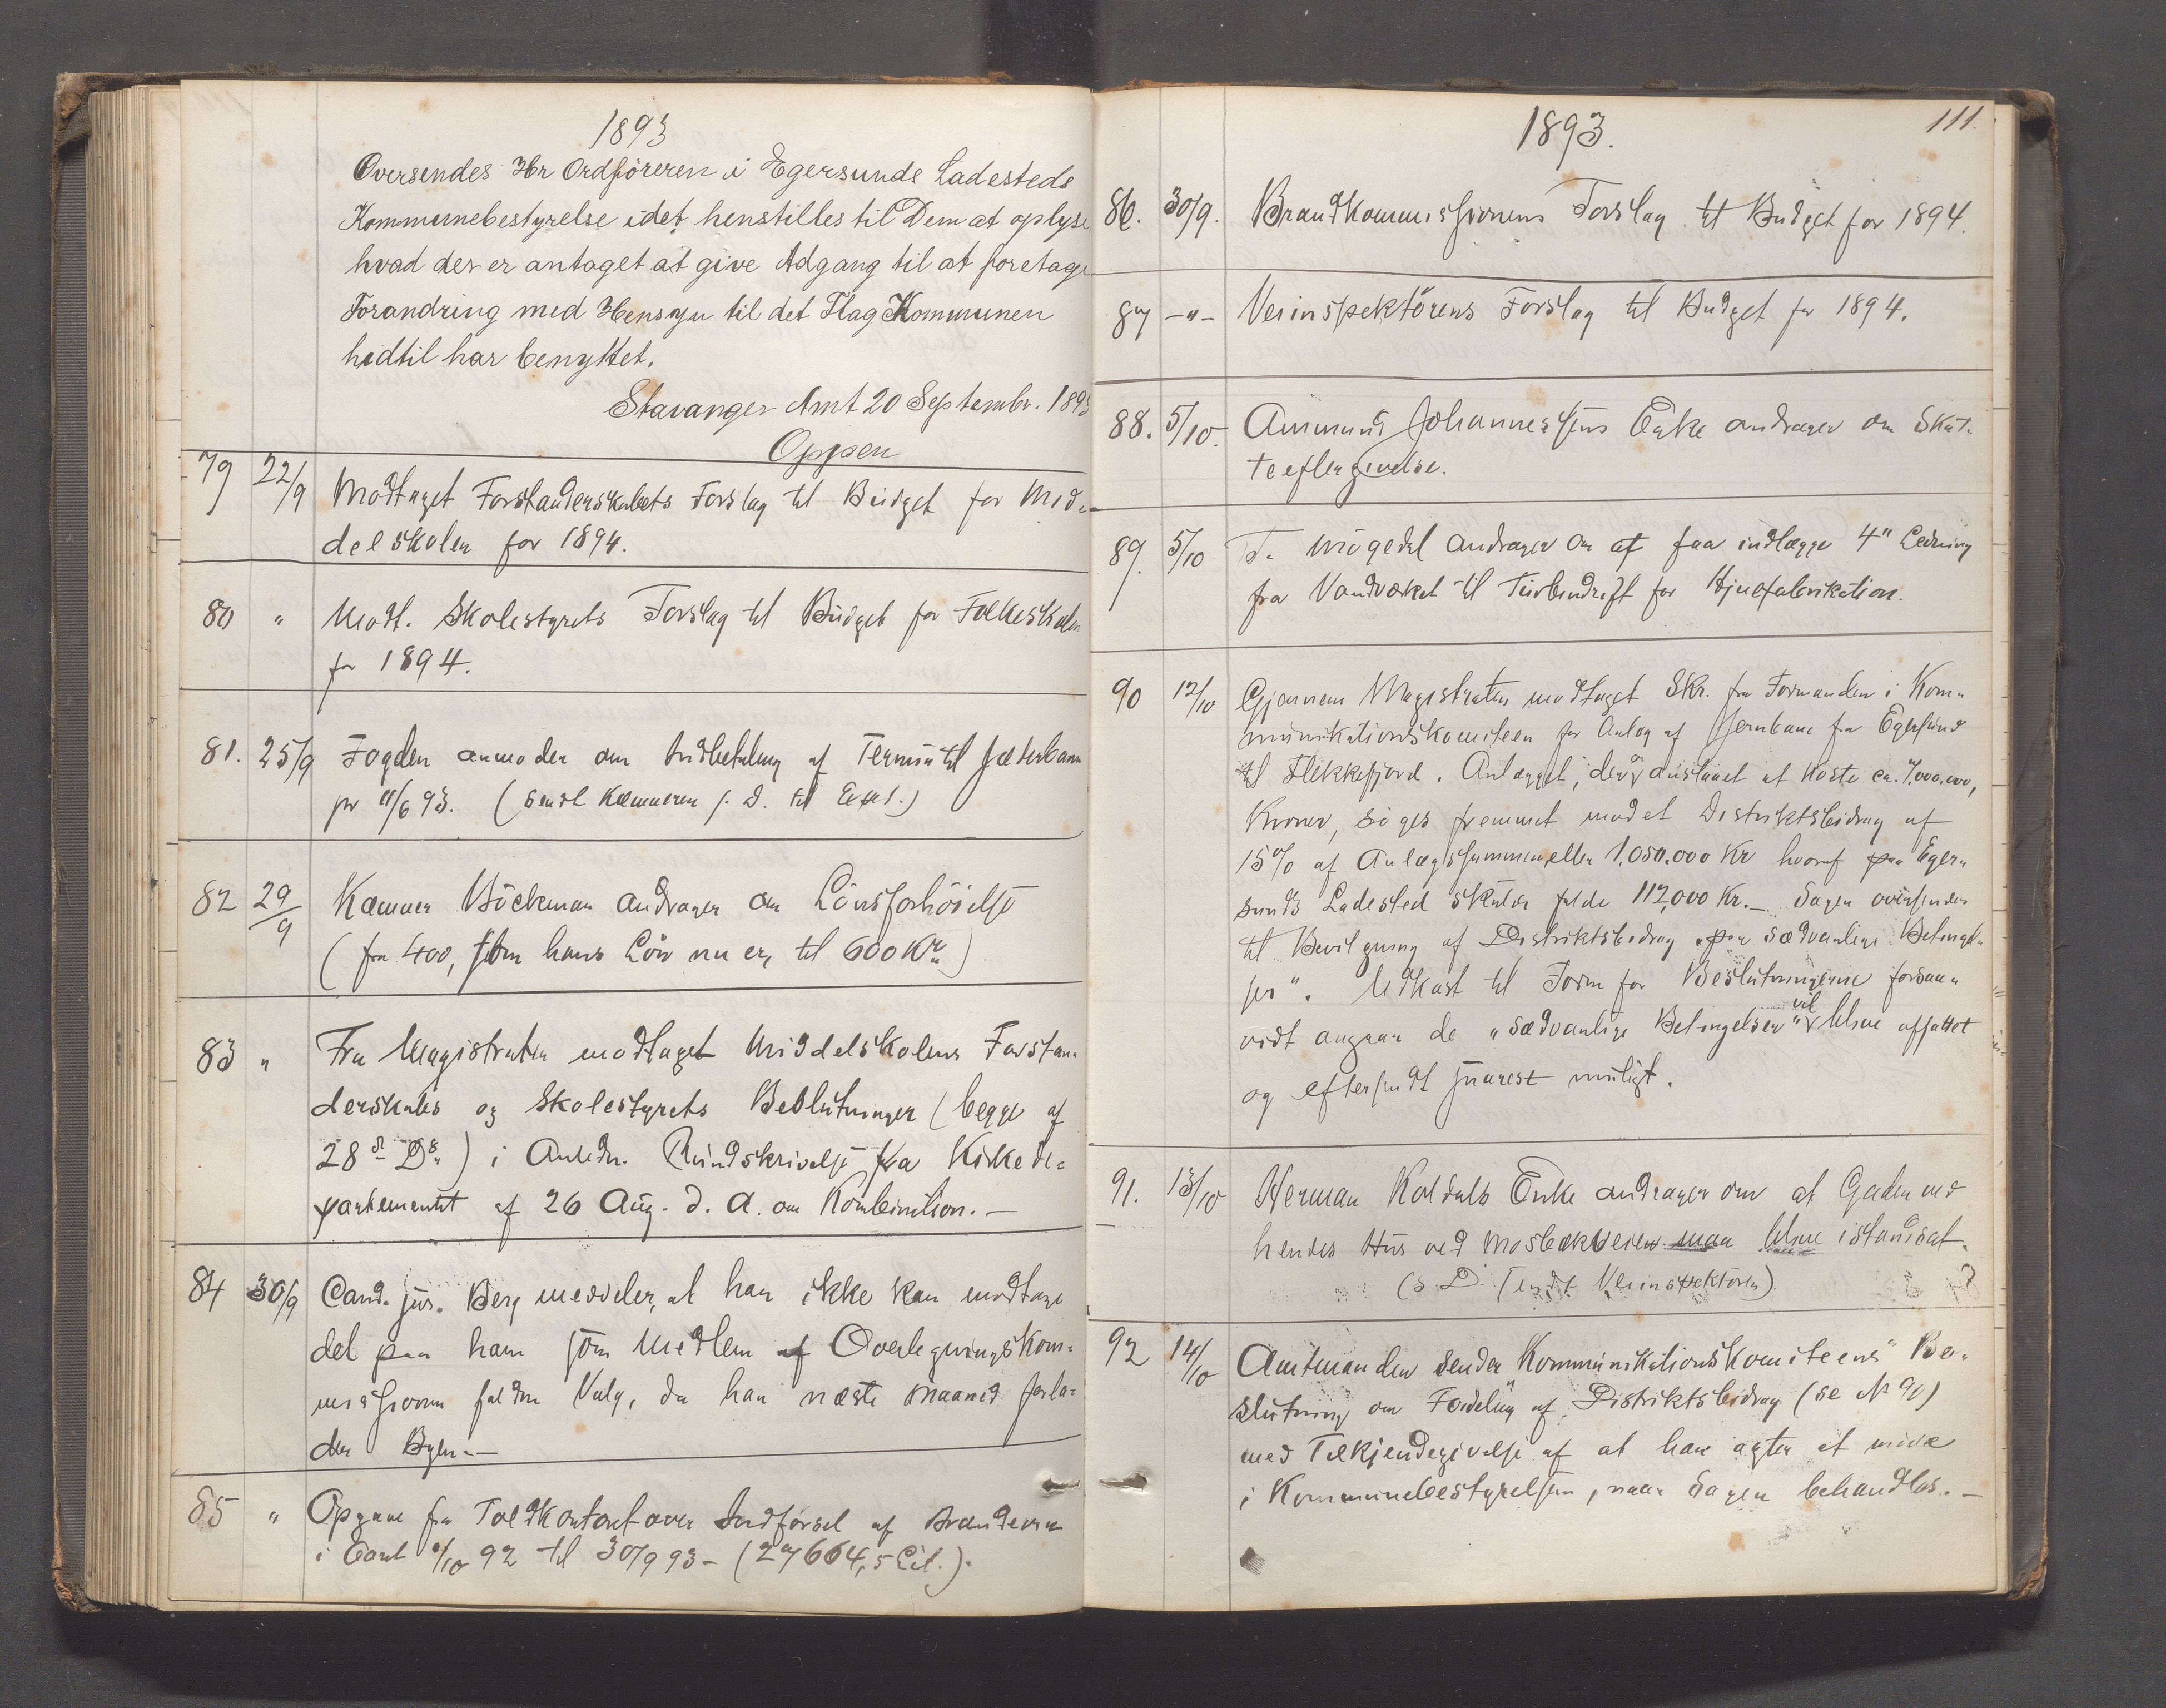 1893
Oversendes Hr Ordföreren i Egersunds Ladesteds
Kommunebestyrelse idet henstilles til Dem at oplyse
hvad der er antaget at give Adgang til at foretage
Forandring med Hensyn til det Flag Kommunen
hidtil har benyttet.
Stavanger Amt 20 Septembr. 1893
Oppen
79 22/9 Modtaget Forstanderskabets Forslag til Budget for Mid-
delskolen for 1894.
80 " Modt. Skolestyrets Forslag til Budget for Folkeskolen
for 1894.
81. 25/9 Fogden anmoder om Indbetaling af Termin til Jæderbanen
pr 11/6 93. (Sendt Kæmneren s. D. til Exp.)
82 29/9 Kæmner Böckman andrager om Lönsforhöielse
(fra 400, som hans Lön nu er, til 600 Kr)
83 " Fra Magistraten modtaget Middelskolens Forstan-
derskabs og Skolestyrets Beslutninger (begge af
28de Ds.) i Anledn. Rundskrivelse fra Kirkede-
partementet af 26 Aug. d. A. om Kombination. —
84 30/9 Cand. jur. Berg meddeler, at han ikke kan modtage
det paa ham som Medlem af Overligningskom-
missionen faldne Valg, da han næste Maaned forla-
der Byen. —
85 " Opgave fra Toldkontoret over Indförsel af Brændevin
i Aaret 1/10 92 til 30/9 93 - (27664,5 Lit.).
111.
1893.
86. 30/9. Brandkommissionens Forslag til Budget for 1894.
87 -"- Veiinspektörens Forslag til Budget for 1894.
88. 5/10. Ammund Johannessens Enke andrager om Skat-
teeftergivelse.
89. 5/10 T. Mögedal andrager om at faa indlægge 4" Ledning
fra Vandværket til Turbindrift for Hjulfabrikation.
90 12/10 Gjennem Magistraten modtaget Skr. fra Formanden i Kom-
munikationskomiteen for Anlæg af Jernbane fra Egersund
til Flekkefjord. Anlægget, der er anslaaet at koste ca. 7.000.000,
Kroner, söges fremmet mod et Distriktsbidrag af
15% af Anlægssummen eller 1.050.000 Kr hvoraf paa Eger-
sunds Ladested skulde falde 112,000 Kr. — Sagen oversendes
til Bevilgning af Distriktsbidrag "paa sædvanlige Betingel-
ser". Udkast til Form for Beslutningerne forsaa-
vidt angaar de "sædvanlige Betingelser" vil blive affattet
og eftersendt snarest muligt.
91. 13/10 Herman Koldals Enke andrager om at Gaden ved
hendes Hus ved Mosbækveien maa blive istandsat.
(s. D. sendt Veiinspektören).
92 14/10 Amtmanden sender "Kommunikationskomiteens" Be-
slutning om Fordeling af Distriktsbidrag (se № 90)
med Tilkjendegivelse af at han agter at möde
i Kommunebestyrelsen, naar Sagen behandles. —